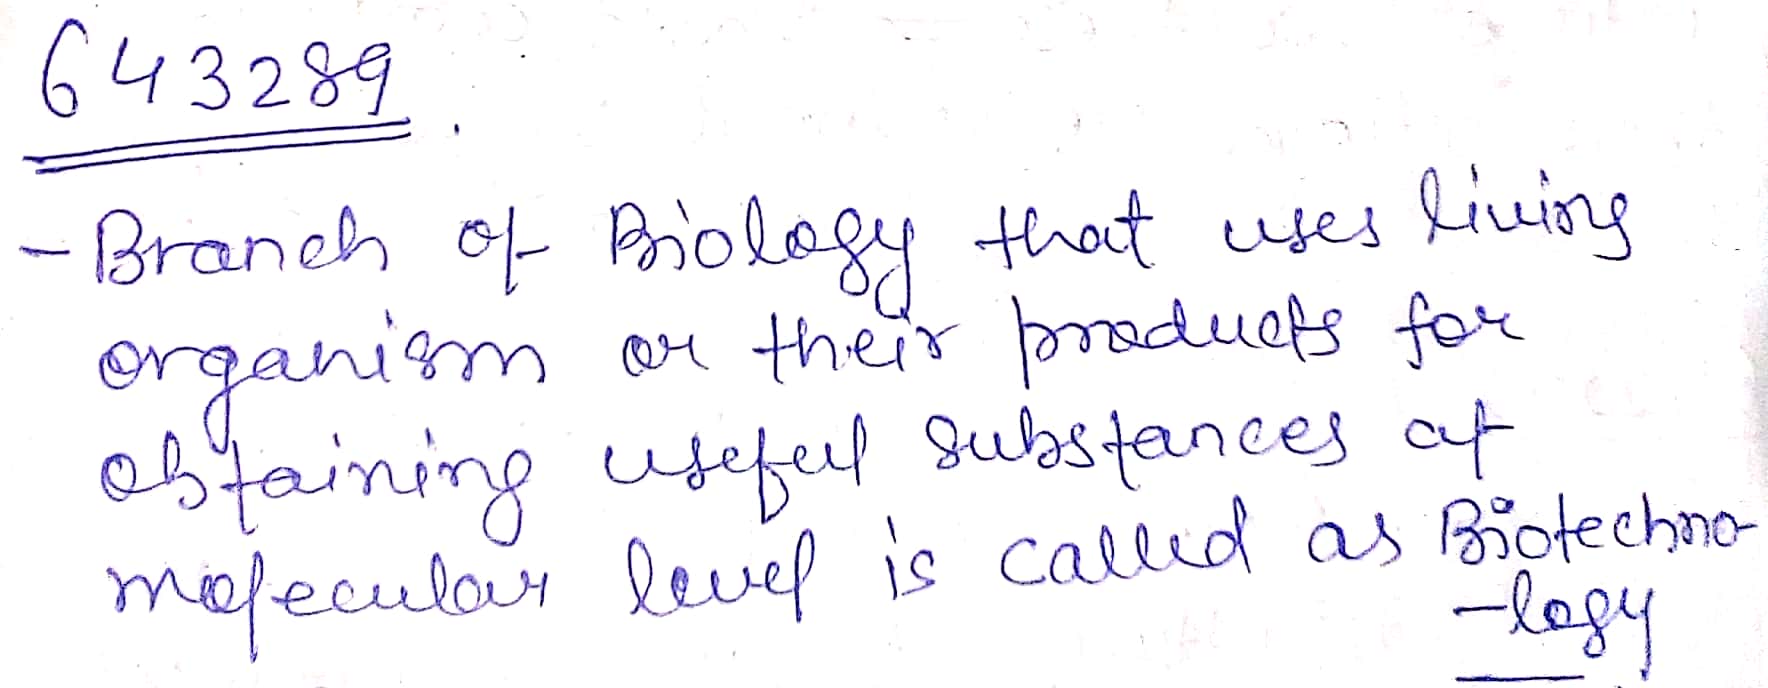 643289.
- Branch of Biology that uses living
organism or their products for
obtaining useful substances at
molecular level is called as Biotechno-
-logy